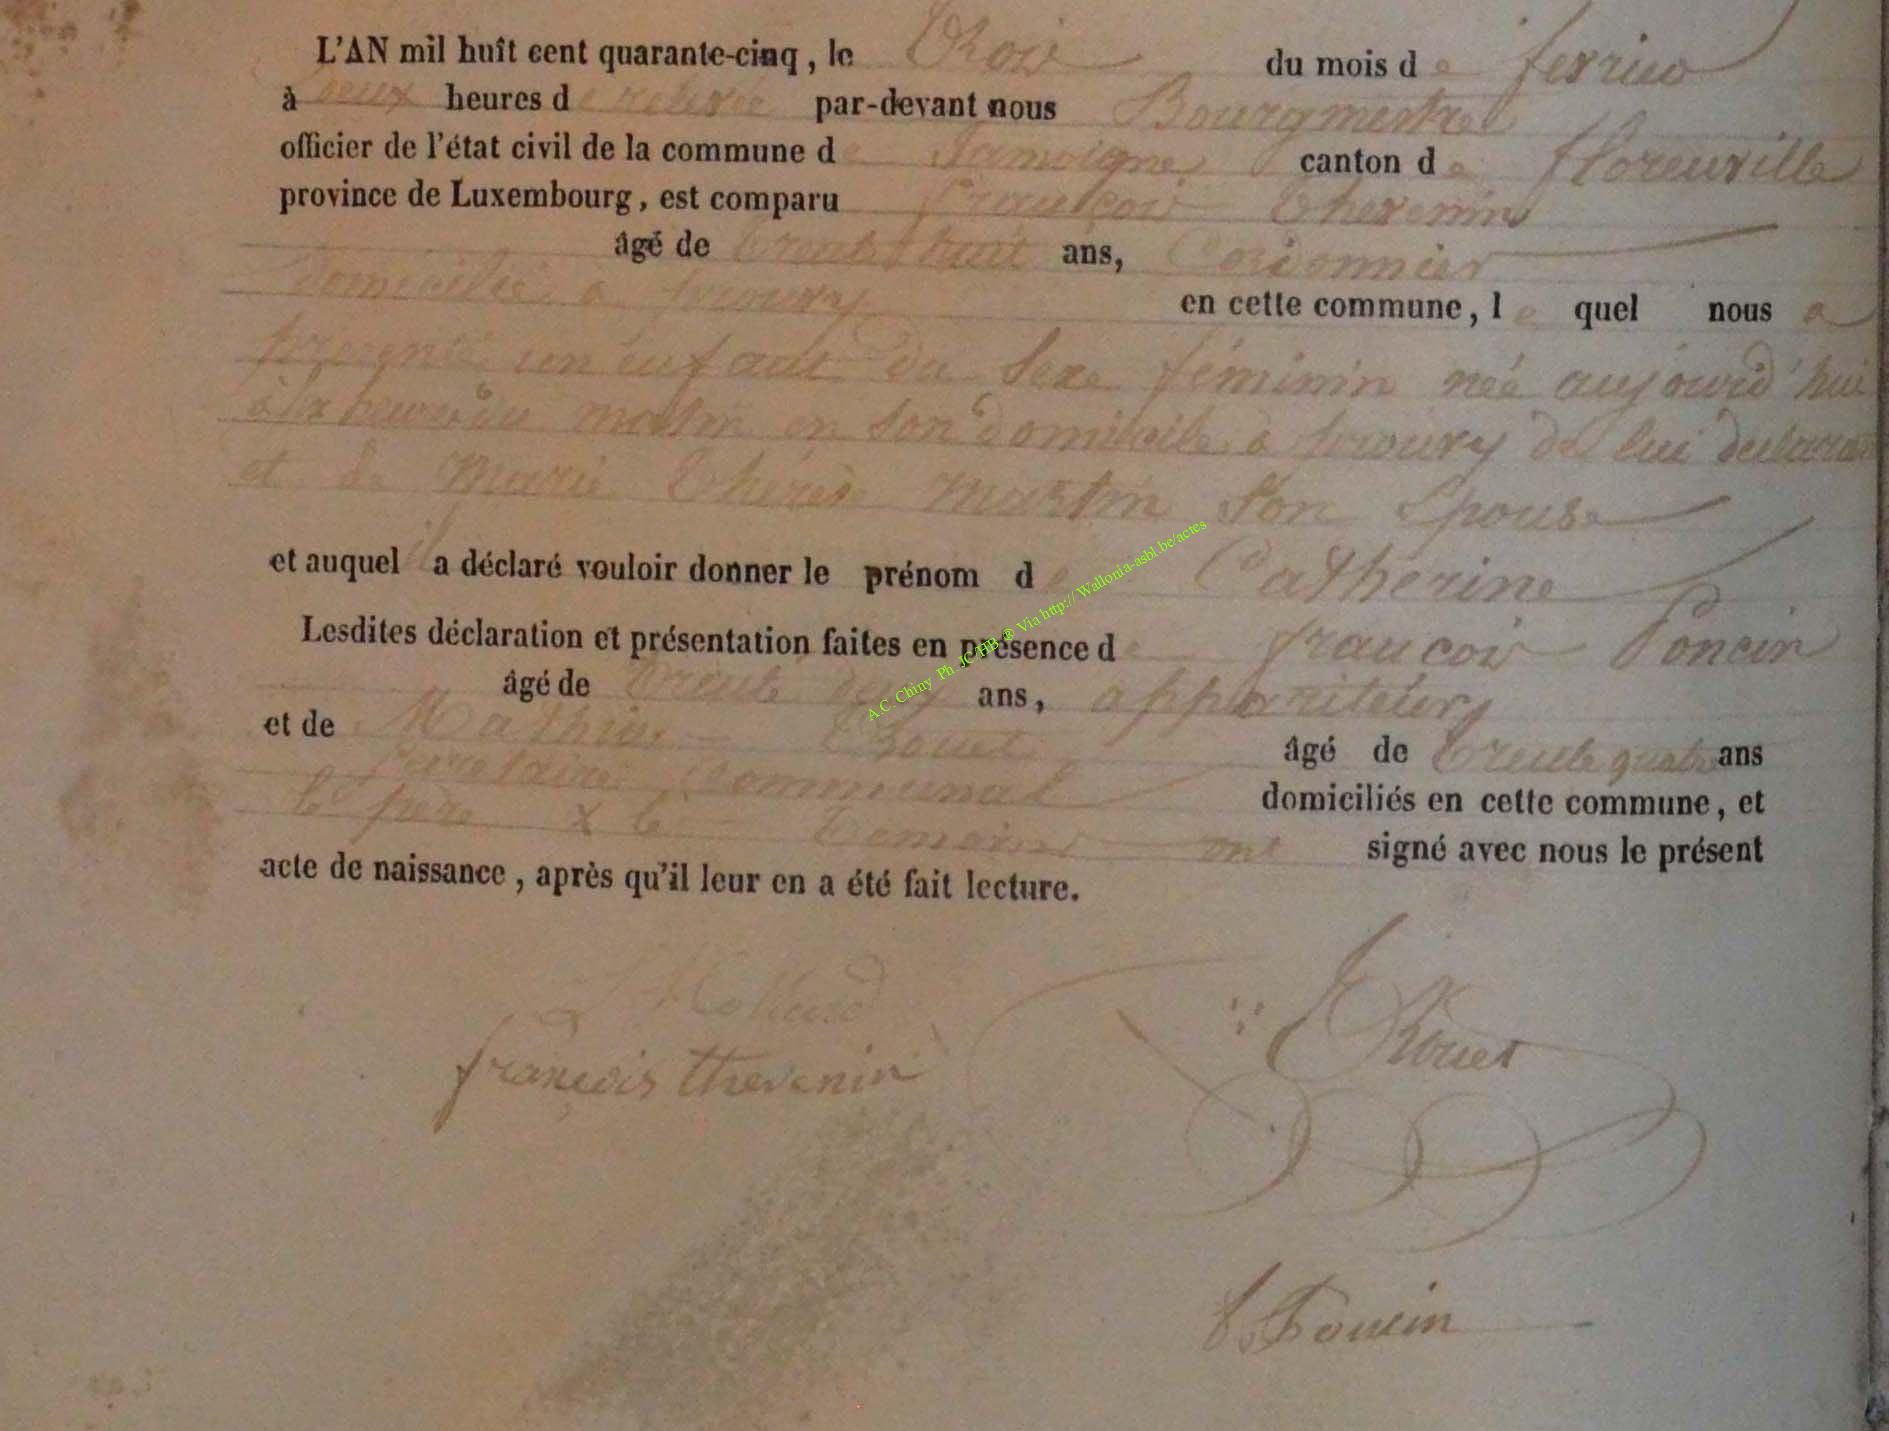 L'AN mil huit cent quarante-cinq, le trois du mois de fevrier
à deux heures de relevée par-devant nous Bourgmestre
officier de l'état civil de la commune de Jamoigne canton de florenville
province de Luxembourg, est comparu françois thevenin
âgé de trente huit ans, Cordonnier
domicilié à prouvy en cette commune, le quel nous a
presenté un enfant du sexe féminin née aujourd'hui
à six heures du matin en son domicile à prouvy de lui declarant
et de Marie thérèse Martin son Epouse
et auquel il a déclaré vouloir donner le prénom de Catherine
Lesdites déclaration et présentation faites en présence de françois Poncin
âgé de trente deux ans, appariteur
et de Mathieu Rouet âgé de trente quatre ans
secretaire communal domiciliés en cette commune, et
le père & le temoins ont signé avec nous le présent
acte de naissance, après qu'il leur en a été fait lecture.
françois thevenin
Rouet
Poncin
A.C. Chiny Ph. JC HB ® Via http://Wallonia-asbl.be/actes